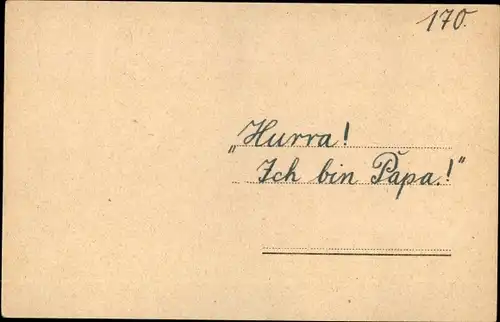 170.
„Hurra!
Ich bin Papa.!“